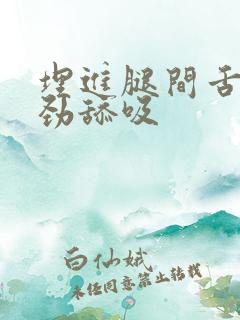 埋進腿間舌
勁舔吸
白仙娥
未经同意禁止转载